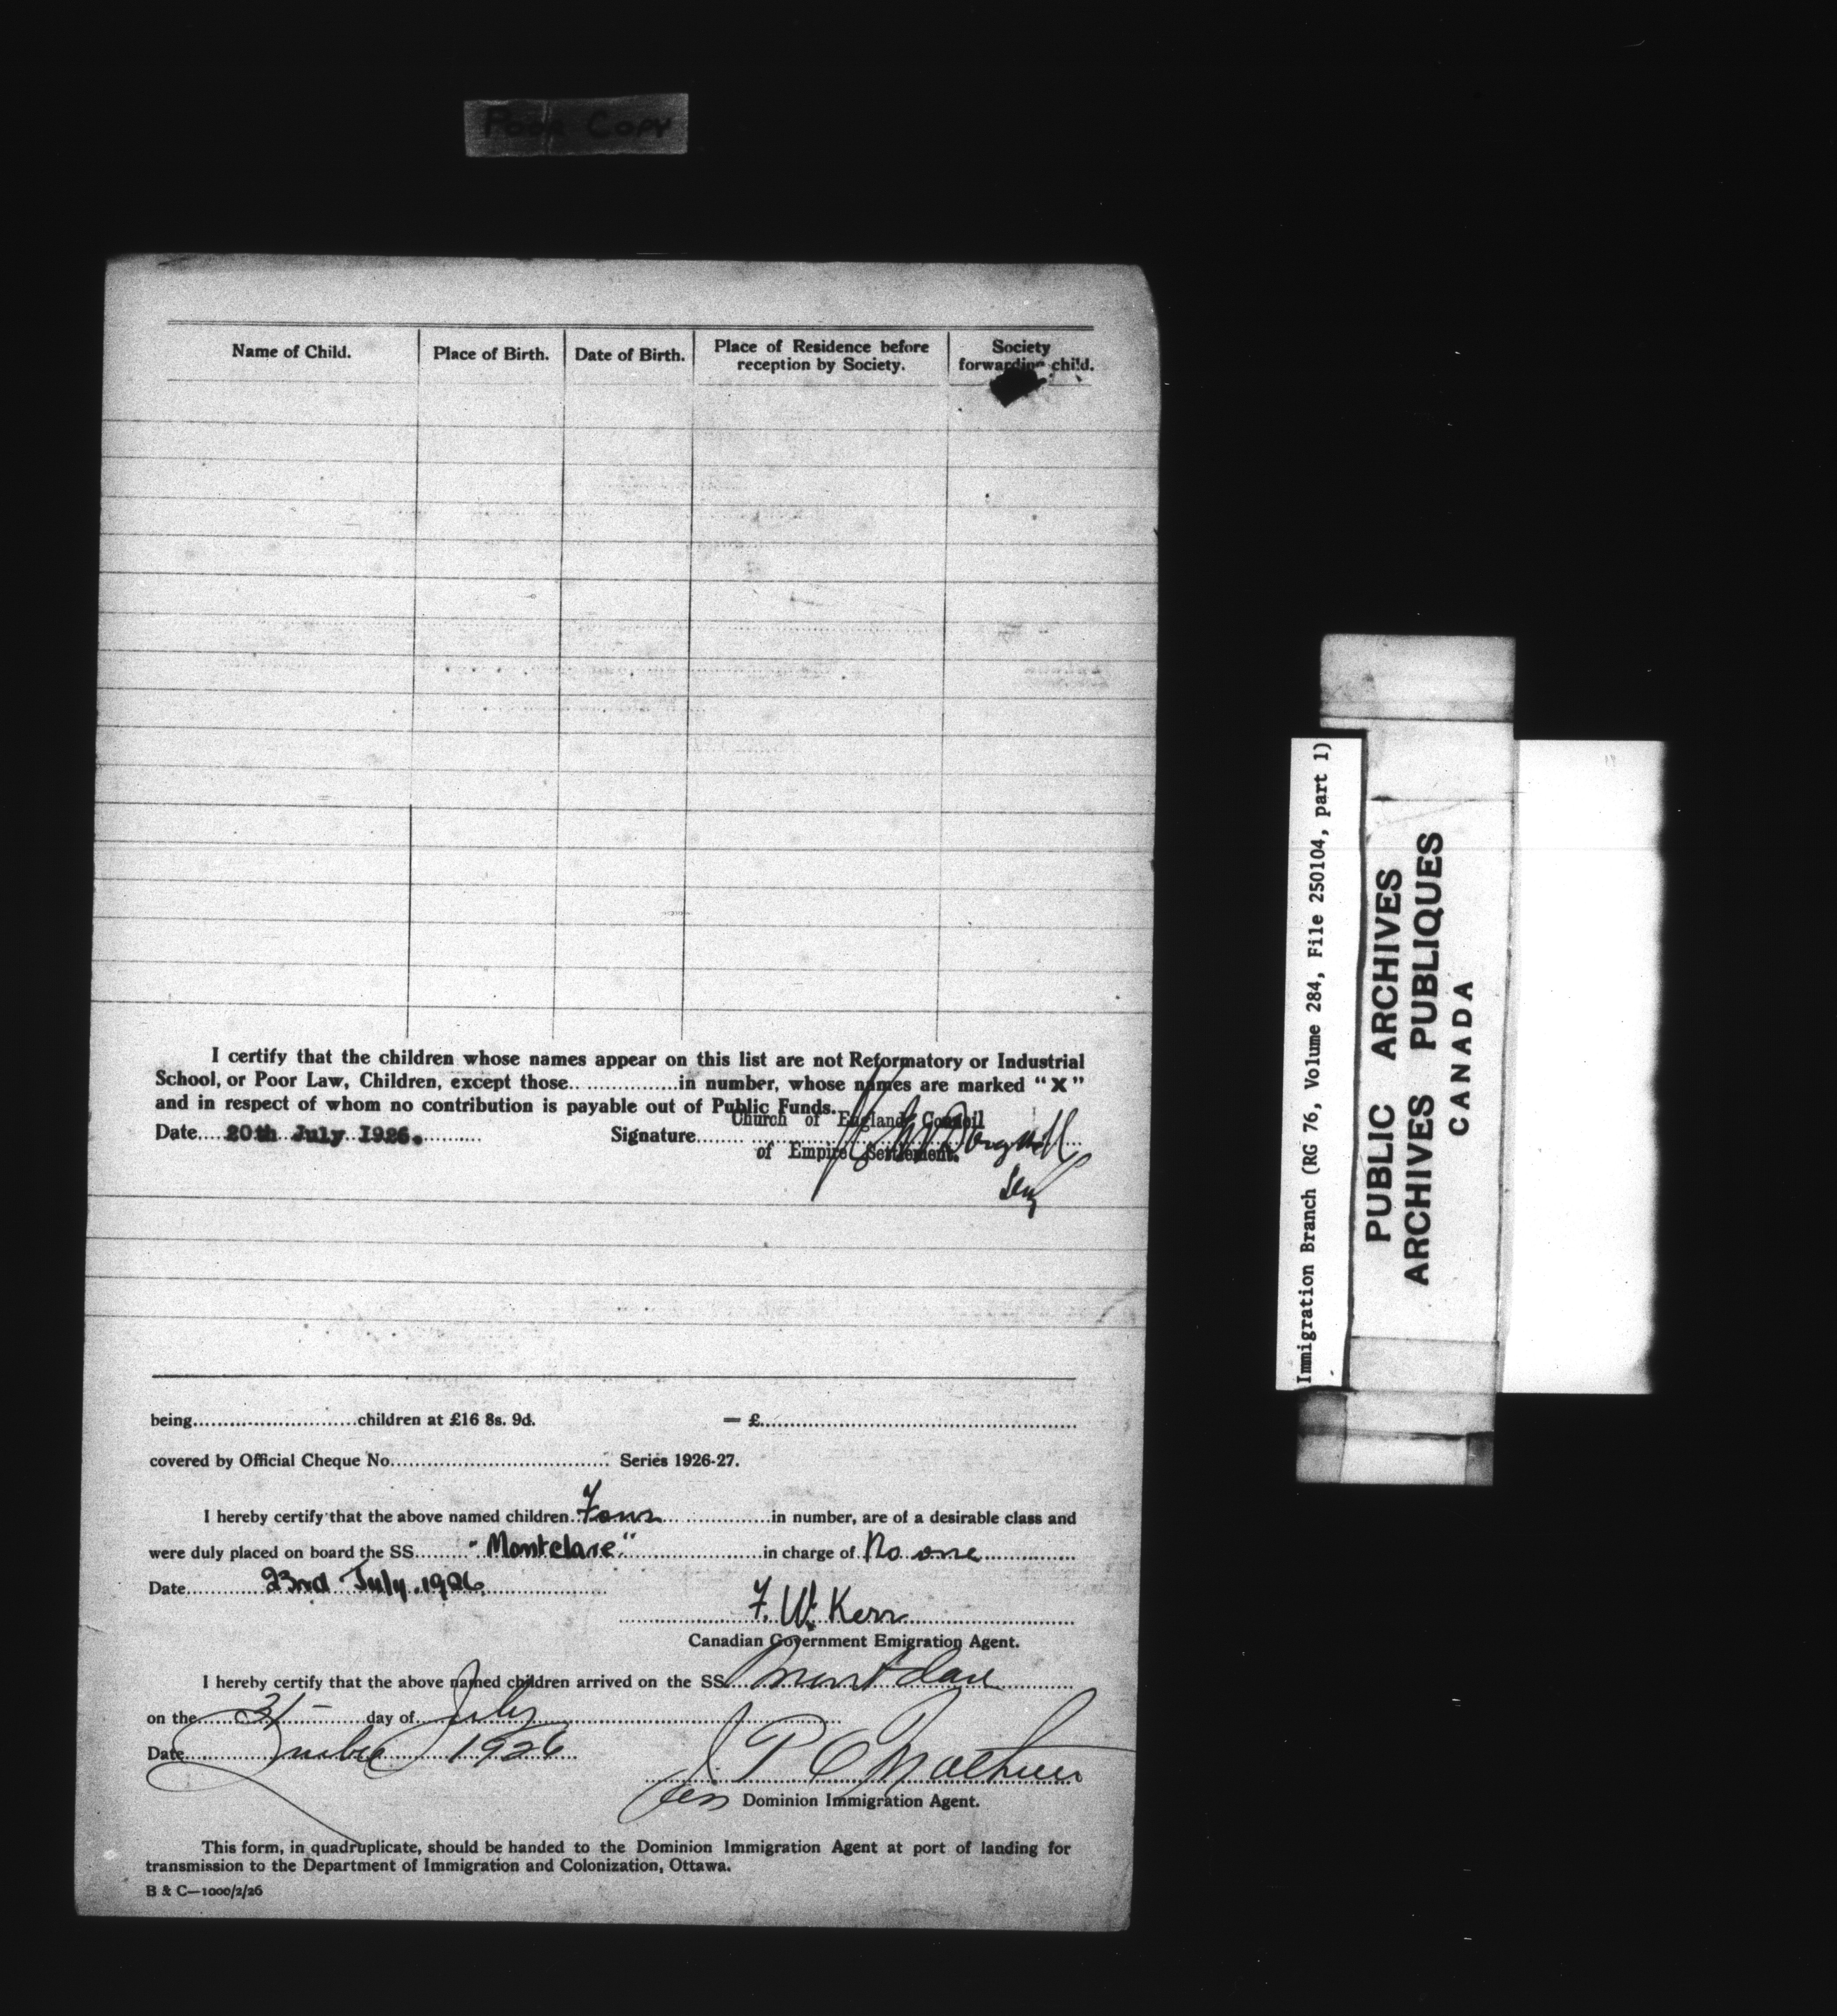 Poor Copy
Name of Child.
Place of Birth.
Date of Birth.
Place of Residence before
reception by Society.
Society
forwarding child.
I certify that the children whose names appear on this list are not Reformatory or Industrial
School, or Poor Law, Children, except those.. ................in number, whose names are marked "X"
and in respect of whom no contribution is payable out of Public Funds.
Church of England Council
Date....20th July 1926............
Signature.......
of Empire Settlement.
Secy
being............................children at £16 8s. 9d.
— £......................................................
covered by Official Cheque No...................................... Series 1926-27.
I hereby certify that the above named children..Four...................in number, are of a desirable class and
were duly placed on board the SS.........."Montclare"........................in charge of No one................
Date.............23rd July.1926.....................
F. W. Kerr
Canadian Government Emigration Agent.
I hereby certify that the above named children arrived on the SS Montclare
on the......31...........day of.....July
Date...........Quebec..........1926
J P
for Dominion Immigration Agent.
This form, in quadruplicate, should be handed to the Dominion Immigration Agent at port of landing for
transmission to the Department of Immigration and Colonization, Ottawa.
B & C—1000/2/26
Immigration Branch (RG 76, Volume 284, File 250104, part 1)
PUBLIC ARCHIVES
ARCHIVES PUBLIQUES
CANADA